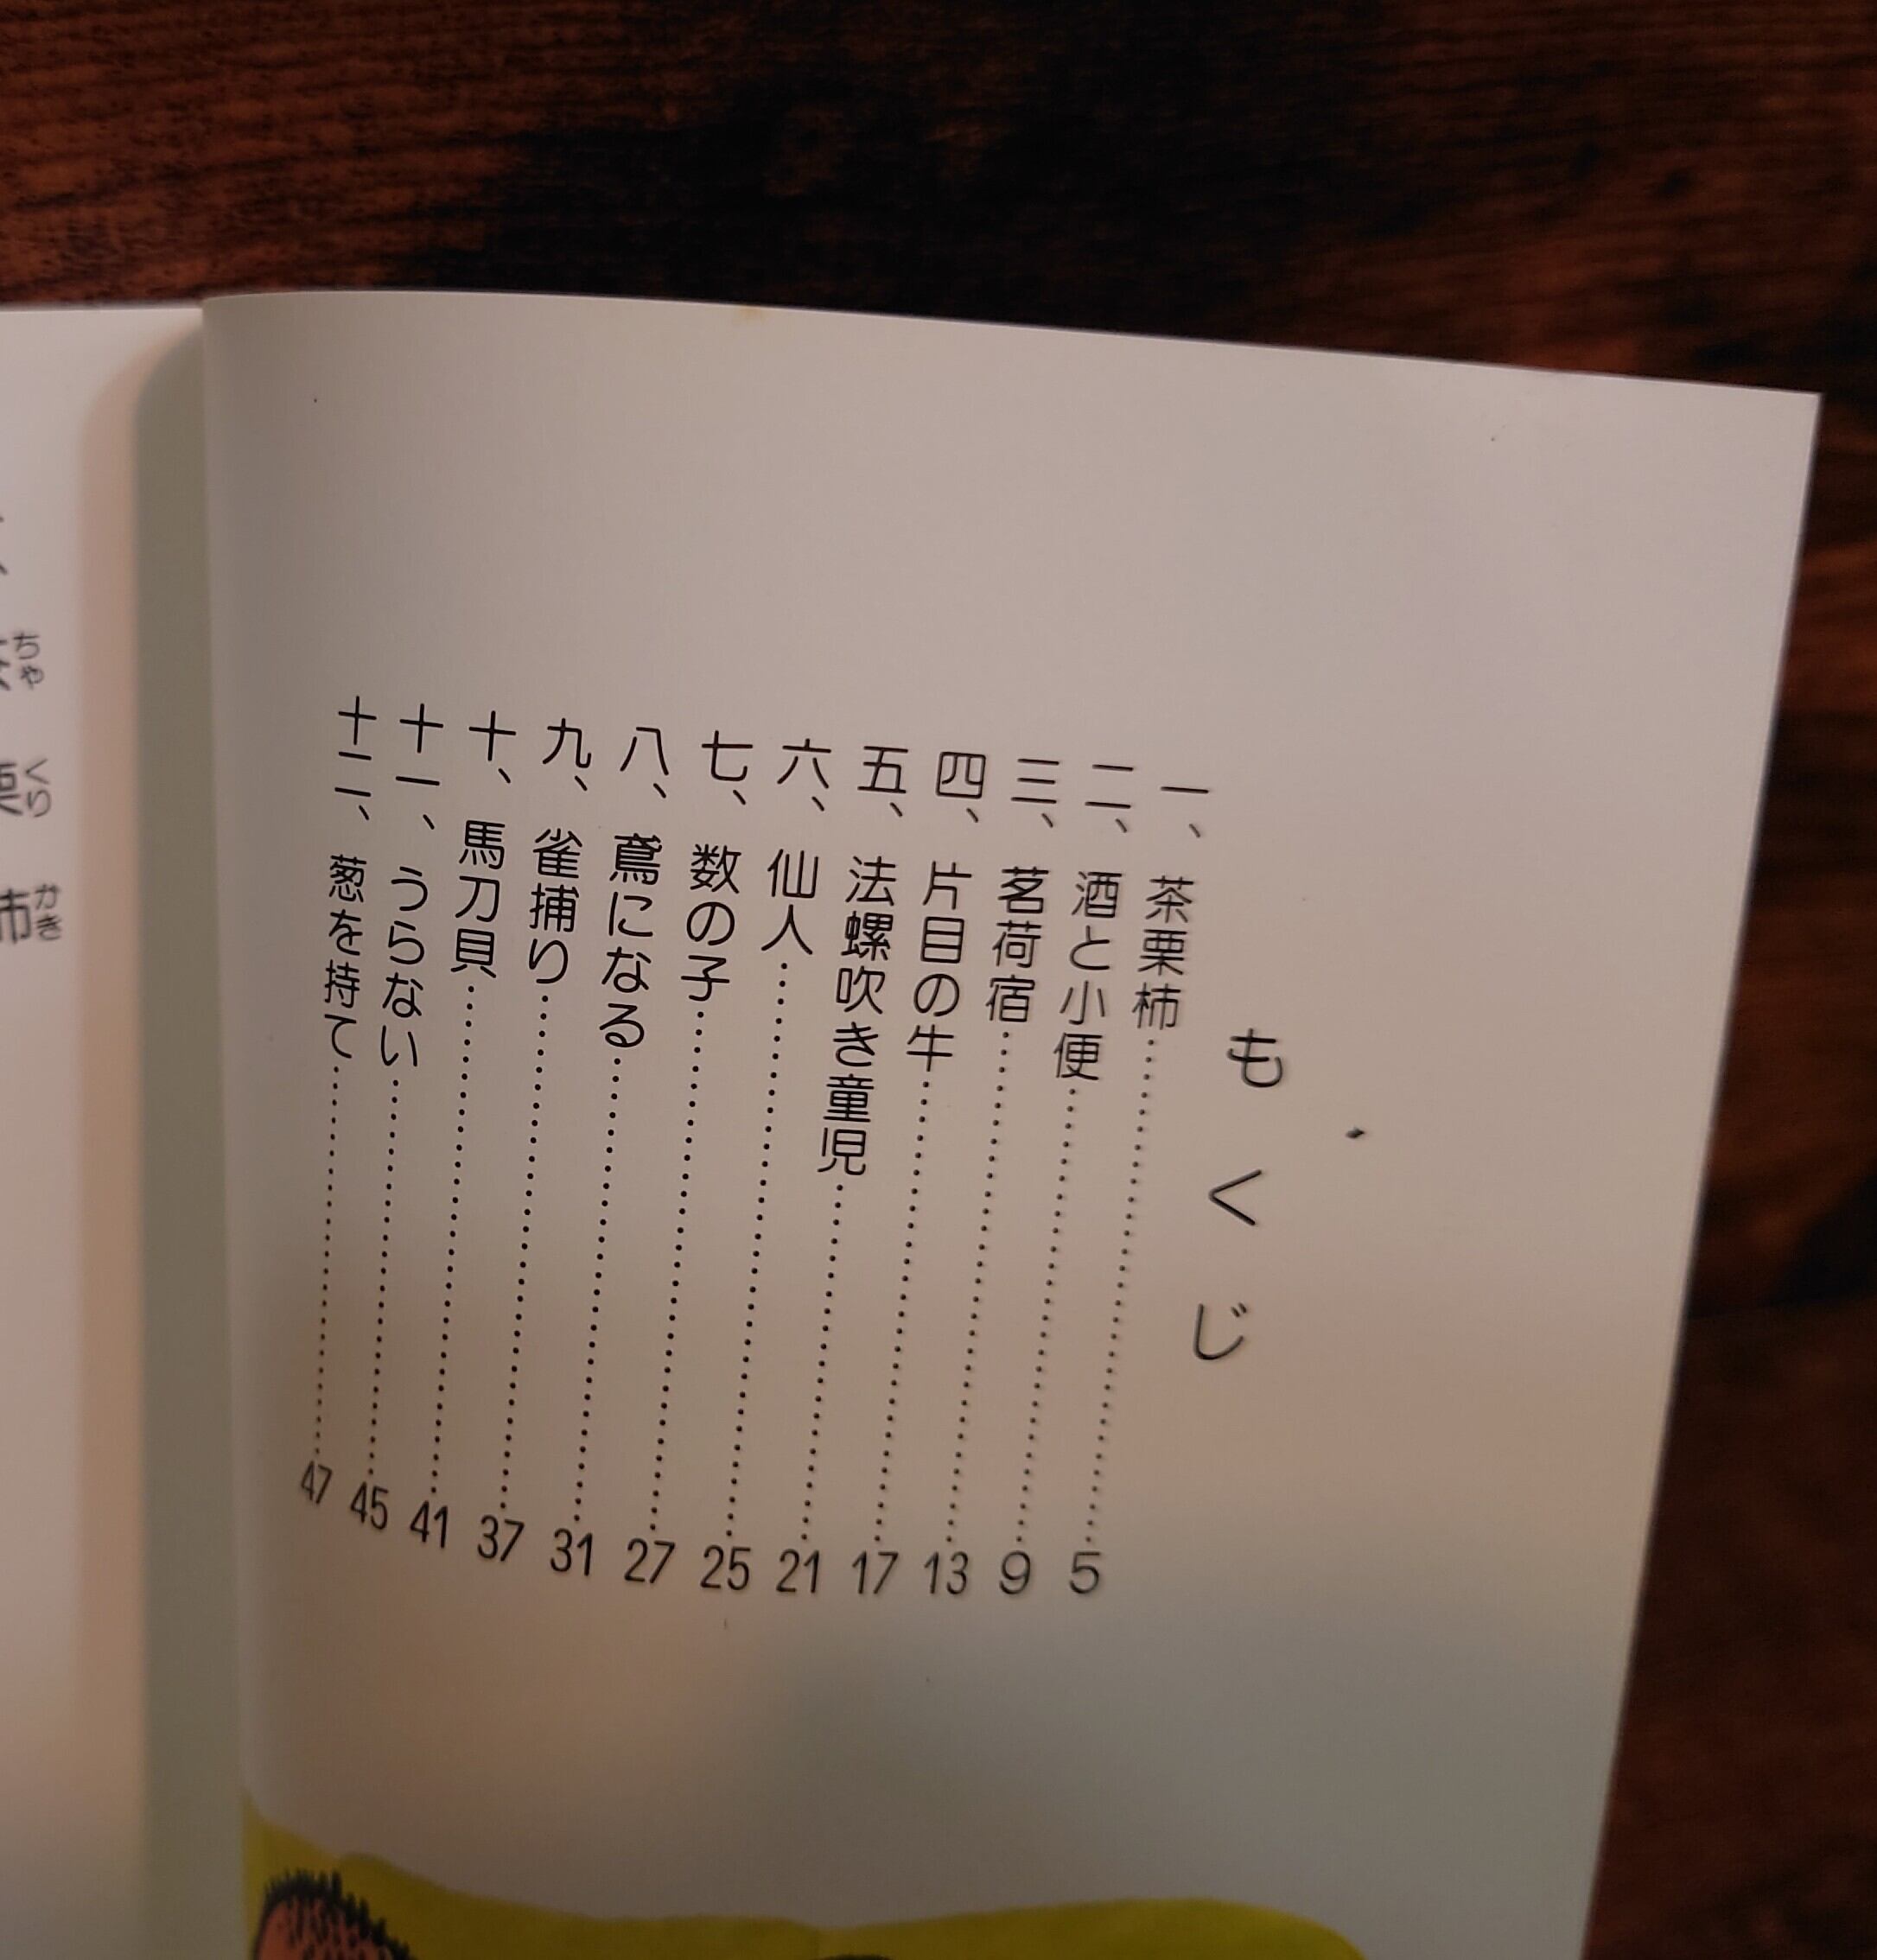 もくじ
一、茶栗柿……5
二、酒と小便……9
三、茗荷宿……13
四、片目の牛……17
五、法螺吹き童児……21
六、仙人……25
七、数の子……27
八、鳶になる……31
九、雀捕り……37
十、馬刀貝……41
十一、うらない……45
十二、葱を持て……47
ちゃ
くり
柿かき